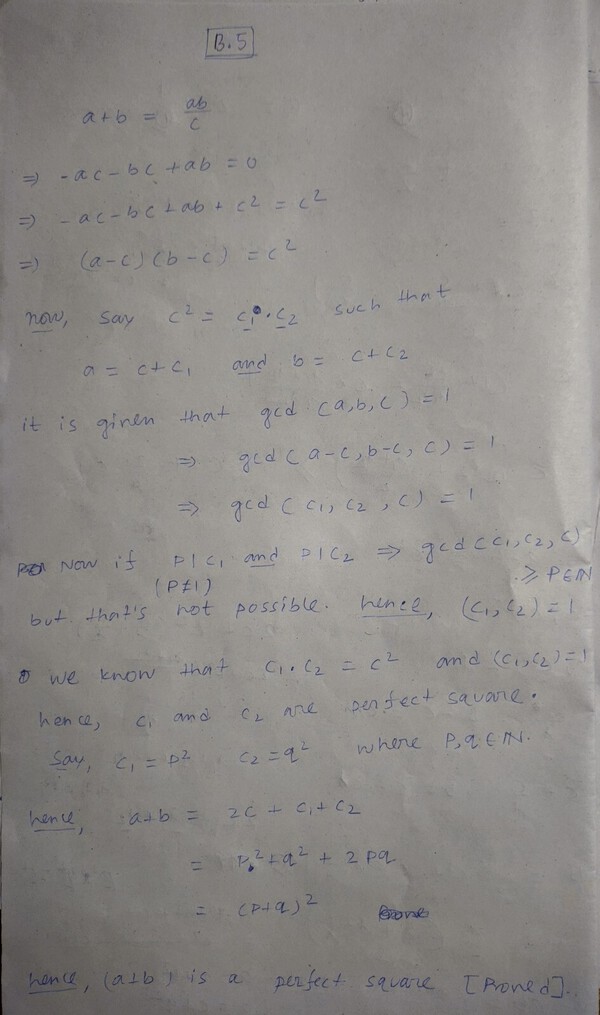 B.5
a+b = ab/c
⇒ -ac-bc+ab = 0
⇒ -ac-bc+ab+c² = c²
⇒ (a-c)(b-c) = c²
now, say c² = c₁·c₂ such that
a = c+c₁ and b = c+c₂
it is given that gcd(a,b,c) = 1
⇒ gcd(a-c, b-c, c) = 1
⇒ gcd(c₁, c₂, c) = 1
Now if P|c₁ and P|c₂ ⇒ gcd(c₁,c₂,c)
(P≠1) ≥ P∈ℕ
but that's not possible. hence, (c₁,c₂)=1
we know that c₁·c₂ = c² and (c₁,c₂)=1
hence, c₁ and c₂ are perfect square.
Say, c₁ = p² c₂ = q² where p,q∈ℕ.
hence, a+b = 2c+c₁+c₂
= p²+q²+2pq
= (p+q)²
hence, (a+b) is a perfect square [Proved].